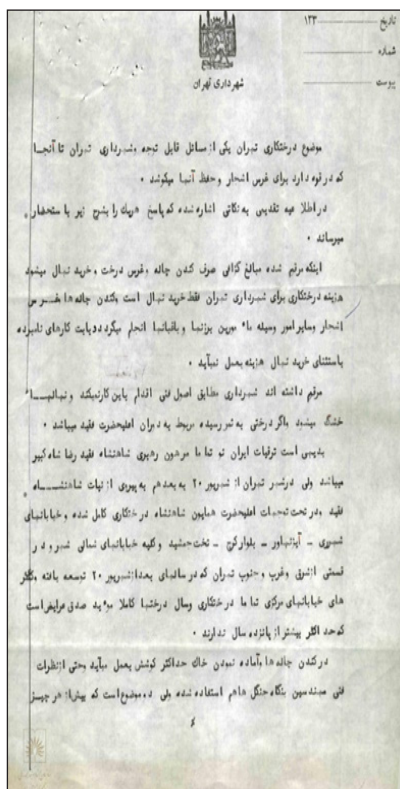 تاریخ ۱۳۳
شماره
پیوست
شهرداری تهران
موضوع درختکاری تهران یکی از مسائل قابل توجه وشهرداری تهران تا آنجا
که درقوه دارد برای غرس اشجار وحفظ آنها میکوشد ۰
در اطلاعیه تقدیمی به نکاتی اشاره شده که پاسخ هریك را بشرح زیر باستحضار
میرساند ۰
اینکه مرقوم شده مبالغ گزافی صرف کندن چاله وغرس درخت وخرید نهال میشود
هزینه درختکاری برای شهرداری تهران فقط خرید نهال است وکندن چاله ها غرس
اشجار وسایر امور وسیله مامورین برزنها وباغبانها انجام میگردد بابت کارهای نامبرده
باستثنای خرید نهال هزینه بعمل نمیآید ۰
مرقوم داشته اند شهرداری مطابق اصول فنی اقدام باین کار نمیکند و نهالها
خشک میشود واگر درختی به ثمر رسیده مربوط به دوران اعلیحضرت فقید میباشد ۰
بدیهی است ترقیات ایران نو تماما مرهون رهبری شاهنشاه فقید رضا شاه کبیر
میباشد ولی درشهر تهران از شهریور ۲۰ به بعد هم به پیروی از نیات شاهنشاه
فقید ودر تحت توجهات اعلیحضرت همایون شاهنشاه درختکاری کامل شده و خیابانهای
آیزنهاور - بلوار کرج - تخت جمشید وکلیه خیابانهای شمالی شهر و در
قسمتی از شرق وغرب وجنوب تهران که در سالهای بعد از شهریور ۲۰ توسعه یافته
های خیابانهای مرکزی تماما درختکاری وسال درختها کاملا موید صدق عرایض است
که حداکثر بیشتر از پانزده سال ندارند ۰
در کندن چاله ها وآماده نمودن خاک حداکثر کوشش بعمل میآید وحتی از نظرات
فنی مهندسین بنگاه جنگل ها هم استفاده شده ولی دو موضوع است که بیش از هر چیز